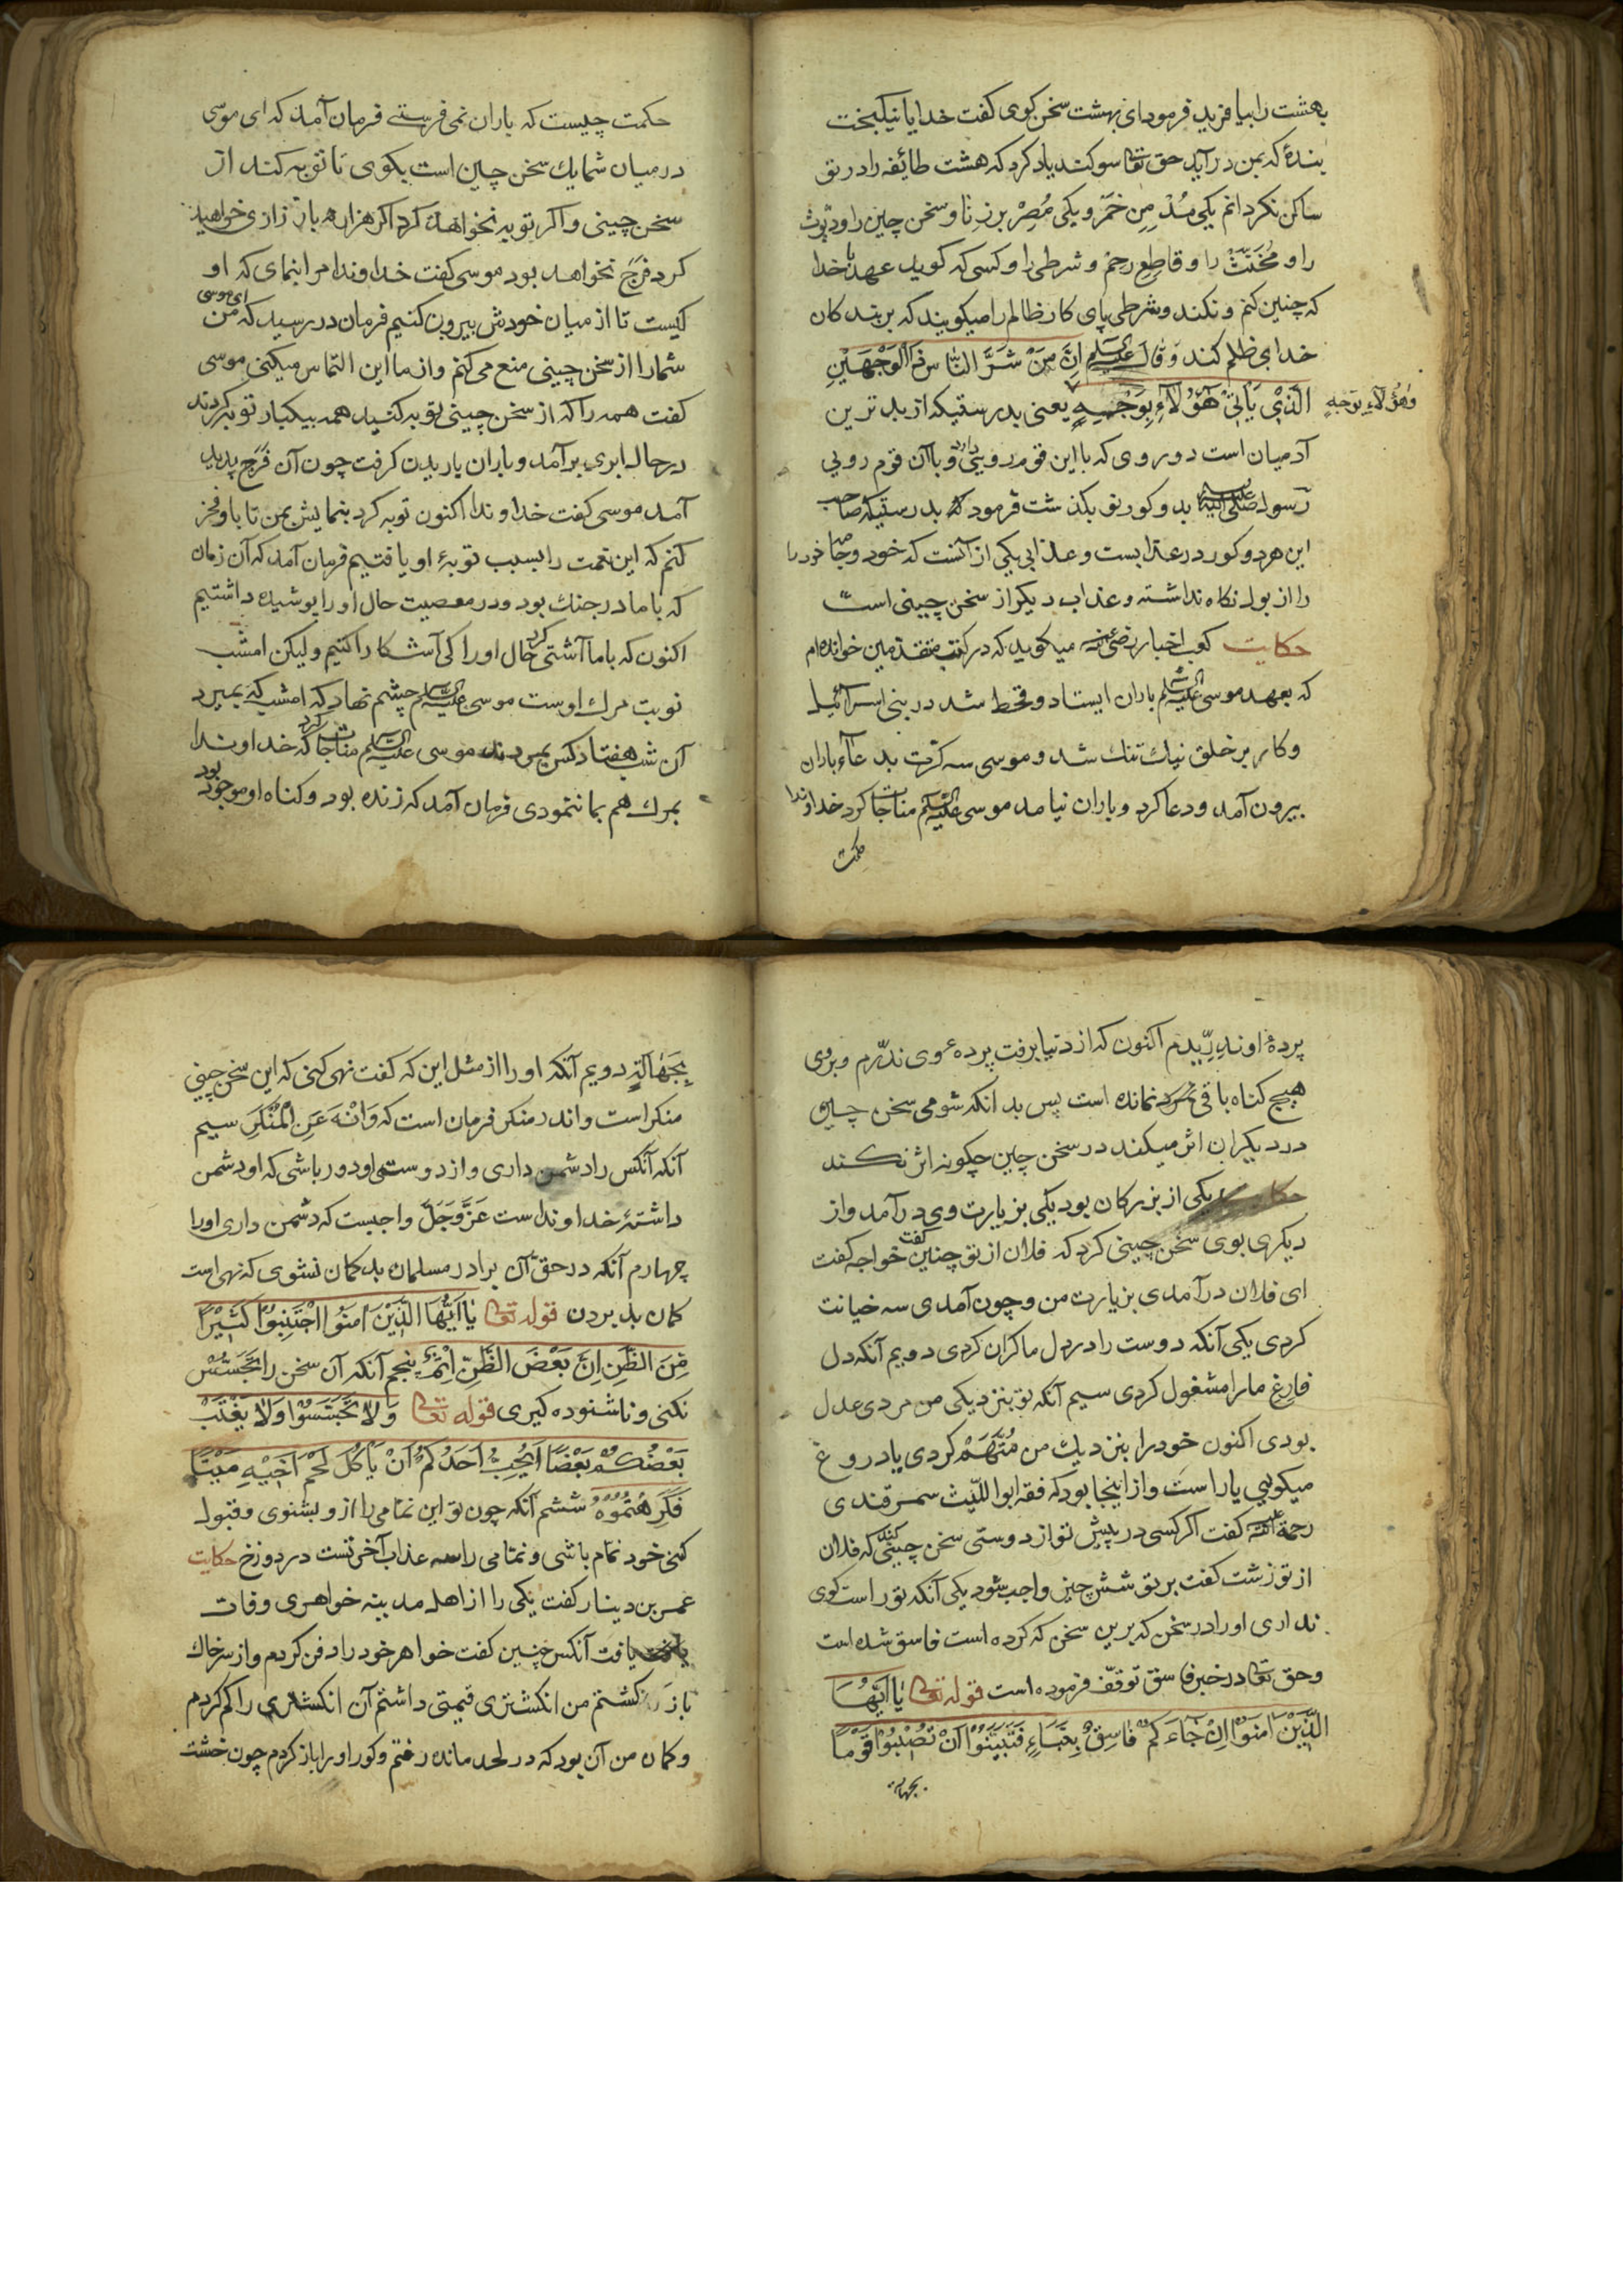 بهشت را بیافرید فرمود ای بهشت سخن کوی کفت خدایا نیکبخت
بندهٔ که بمن درآید حق تعا سوکند یاد کرد که هشت طائفه را در تو
ساکن نکردانم یکی مُدْمِنِ خَمَرْ و یکی مُصِرْ بر زنا و سخن چین را و دیّوث
را و مُخَنَّثْ را و قاطِعِ رحِمْ و شرطی را و کسی که کوید عهد با خدا
که چنین کنم و نکند و شرطی پای کار ظالم را میکویند که بر بندکان
خدای ظلم کند وَقٰالَ علیه السلم اِنَّ مِنْ شَرَّ النّاس ذَاالْوَجْهَیْنِ
الَّذِی یَأْتِیْ هٰؤُلاٰءِ بِوَجْهِهٍ یعنی بدرستیکه از بدترین
وَهٰؤُلاٰءِ بِوَجْهِهٍ
آدمیان است دو روی که با این قوم رویی دارد و با آن قوم رویی
رسول صلی الله علیه بدو کور بکذشت فرمود که بدرستیکه صاحب
این هر دو کور در عذابست و عذابی یکی از آنست که خود و جامهٔ خود را
را از بول نکاه نداشته و عذاب دیکر از سخن چینی است
حکایت کعب اخبار رضی الله عنه میکوید که در کتب متقدمین خوانده‌ام
که بعهد موسی علیه السلم باران ایستاد و قحط شد در بنی اسرآئیل
و کار بر خلق نیك تنك شد و موسی سه کرّت بدعآءِ باران
بیرون آمد و دعا کرد و باران نیامد موسی علیه السلم مناجات کرد خداوندا
حکمت
حکمت چیست که باران نمی فرستی فرمان آمد که ای موسی
در میان شما یك سخن چین است بکوی تا توبه کند از
سخن چینی و اکر توبه نخواهد کرد اکر هزار بار زاری خواهید
کرد فَرَج نخواهد بود موسی کفت خداوندا مرا بنمای که او
کیست تا از میان خودش بیرون کنیم فرمان در رسید که ای موسی من
شما را از سخن چینی منع می کنم و از ما این التماس میکنی موسی
کفت همه را که از سخن چینی توبه کنید همه بیکبار توبه کردند
در حال ابری برآمد و باران باریدن کرفت چون آن فَرَج پدید
آمد موسی کفت خداوندا اکنون توبه کرد بنمایش بمن تا باو فخر
کنم که این نعمت را بسبب توبهٔ او یافتیم فرمان آمد که آن زمان
که با ما در جنك بود و در معصیت حال او را پوشیده داشتیم
اکنون که با ما آشتی کرد حال او را کی آشکارا کنیم و لیکن امشب
نوبت مرك اوست موسی علیه السلم چشم نهاد که امشب که بمیرد
آن شب هفتاد کس بمردند موسی علیه السلم مناجات کرد که خداوندا
بمرك هم بما ننمودی فرمان آمد که زنده بود و کناه او موجود بود
پردهٔ او ندِرّیدم اکنون که از دنیا برفت پرده ء وی ندّرم و بروی
هیچ کناه باقی نمانده است پس بدانکه شومی سخن چین
در دیکران اثر میکند در سخن چین چکونه اثر نکند
حکایت یکی از بزرکان بود یکی بزیارت وی درآمد و از
دیکری بوی سخن چینی کرد که فلان از تو چنین کفت خواجه کفت
ای فلان درآمدی بزیارت من و چون آمدی سه خیانت
کردی یکی آنکه دوست را در دل ما کران کردی دویم آنکه دل
فارِغِ ما را مشغول کردی سیم آنکه تو بنزدیکی من مردی عدل
بودی اکنون خود را بنزدیك من مُتَّهَمْ کردی یا دروغ
میکویی یا راست و از اینجا بود که فقه ابو اللّیث سمرقندی
رحمة الله علیه کفت اکر کسی در پیش تو از دوستی سخن چینی کند که فلان
از تو زشت کفت بر تو شش چیز واجب شود یکی آنکه تو راست کوی
نداری او را در سخن که بر این سخن که کرده است فاسق شده است
و حق تعا در خبر فاسق توقّف فرموده است قوله تعا یٰا اَیُّهَا
الَّذِیْنَ اٰمَنُوْا اِنْ جٰاءَکُمْ فٰاسِقٌ بِنَبَاءٍ فَتَبَیَّنُوْا اَنْ تُصِیْبُوْا قَوْمًا
بجهالة
بِجَهٰالَةٍ دویم آنکه او را از مثل این که کفت نهی کنی که این سخن چینی
منکر است و اندر منکر فرمان است که وَانْهَ عَنِ الْمُنْکَرِ سیم
آنکه آنکس را دشمن داری و از دوستی او دور باشی که او دشمن
داشتهٔ خداونداست عَزَّوَجَلَّ واجبست که دشمن داری او را
چهارم آنکه در حق آن برادر مسلمان بد کمان نشوی که نهی است
کمان بد بردن قوله تعا یٰا اَیُّهَا الَّذِیْنَ اٰمَنُوا اجْتَنِبُوْا کَثِیْرًا
مِنَ الظَّنِ اِنَّ بَعْضَ الظَّنِّ اِثْمٌ پنجم آنکه آن سخن را تَجَسُّسْ
نکنی و ناشنوده کیری قوله تعا وَلاٰ تَجَسَّسُوْا وَلاٰ یَغْتَبْ
بَعْضُکُمْ بَعْضًا اَیُحِبُّ اَحَدُکُمْ اَنْ یَأْکُلَ لَحْمَ اَخِیْهِ مَیْتًا
فَکَرِهْتُمُوْهُ ششم آنکه چون تو این نمّامی را از و بشنوی و قبول
کنی خود نمّام باشی و نمّامی را سه عذاب آخرتست در دوزخ حکایت
عمر بن دینار کفت یکی را از اهل مدینه خواهری وفات
یافت آنکس چنین کفت خواهر خود را دفن کردم و از سر خاك
باز کشتم من انکشتری قیمتی داشتم آن انکشتری را کم کردم
و کمان من آن بود که در لحد مانده رفتم و کور او را باز کردم چون خشت